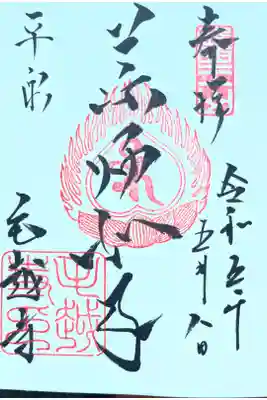 奉拝
令和五年
五月八日
薬師如来
平泉
毛越寺